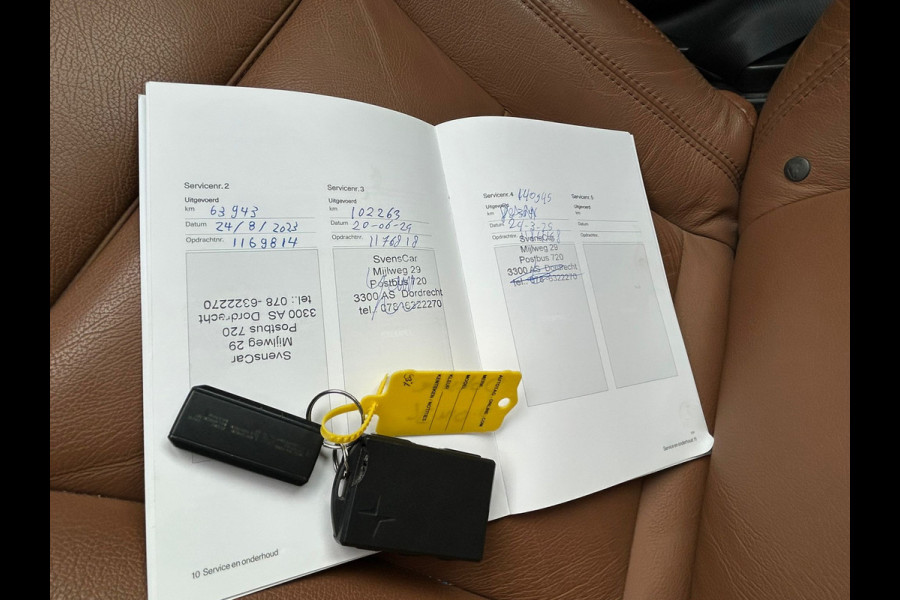 Servicenr. 2
Uitgevoerd
km 63943
Datum 24/8/2023
Opdrachtnr. 1169814
SvensCar
Mijlweg 29
Postbus 720
3300 AS Dordrecht
tel.: 078-6322270
10 Service en onderhoud
Servicenr. 3
Uitgevoerd
km 102263
Datum 20-06-24
Opdrachtnr. 1176818
SvensCar
Mijlweg 29
Postbus 720
3300 AS Dordrecht
tel.: 078-6322270
Servicenr. 4 140345
Uitgevoerd
km
Datum 24-3-25
Opdrachtnr.
SvensCar
Mijlweg 29
Postbus 720
3300 AS Dordrecht
tel.: 078-6322270
Servicenr. 5
Uitgevoerd
km
Datum
Opdrachtnr.
Service en onderhoud 11